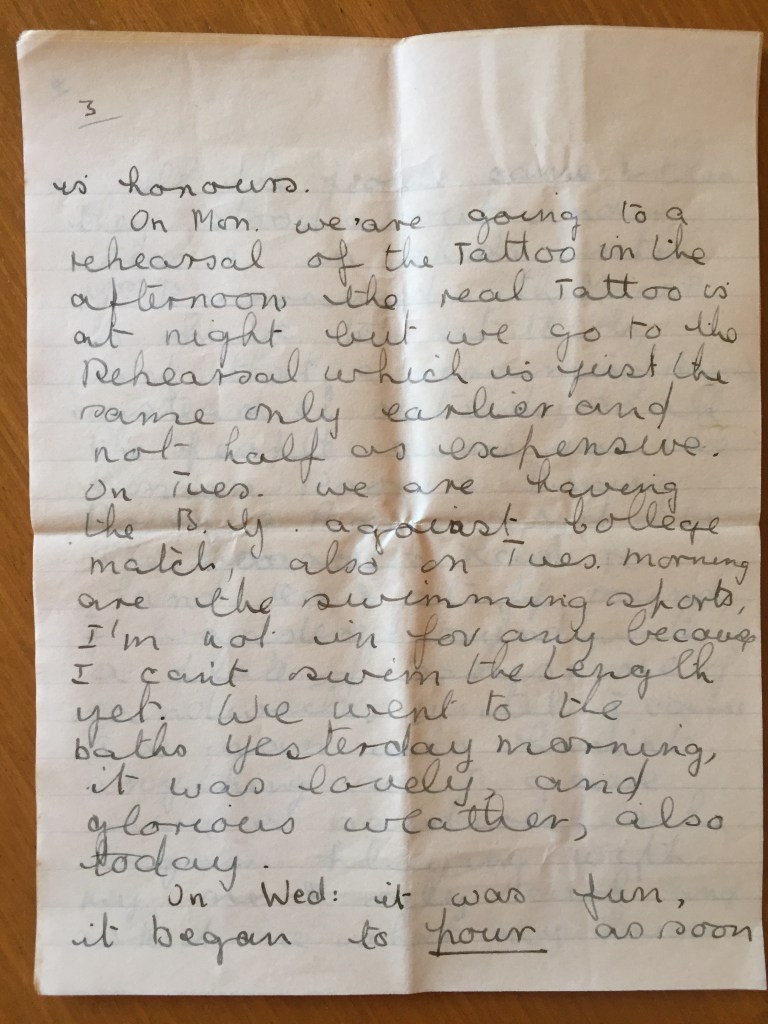 3
is honours.
On Mon. we are going to a
rehearsal of the Tattoo in the
afternoon, the real Tattoo is
at night but we go to the
Rehearsal which is just the
same only earlier and
not half as expensive.
On Tues. we are having
the B.y. against College
match, also on Tues. morning
are the swimming sports,
I'm not in for any because
I can't swim the length
yet. We went to the
baths yesterday morning,
it was lovely, and
glorious weather, also
today.
On Wed: it was fun,
it began to pour as soon